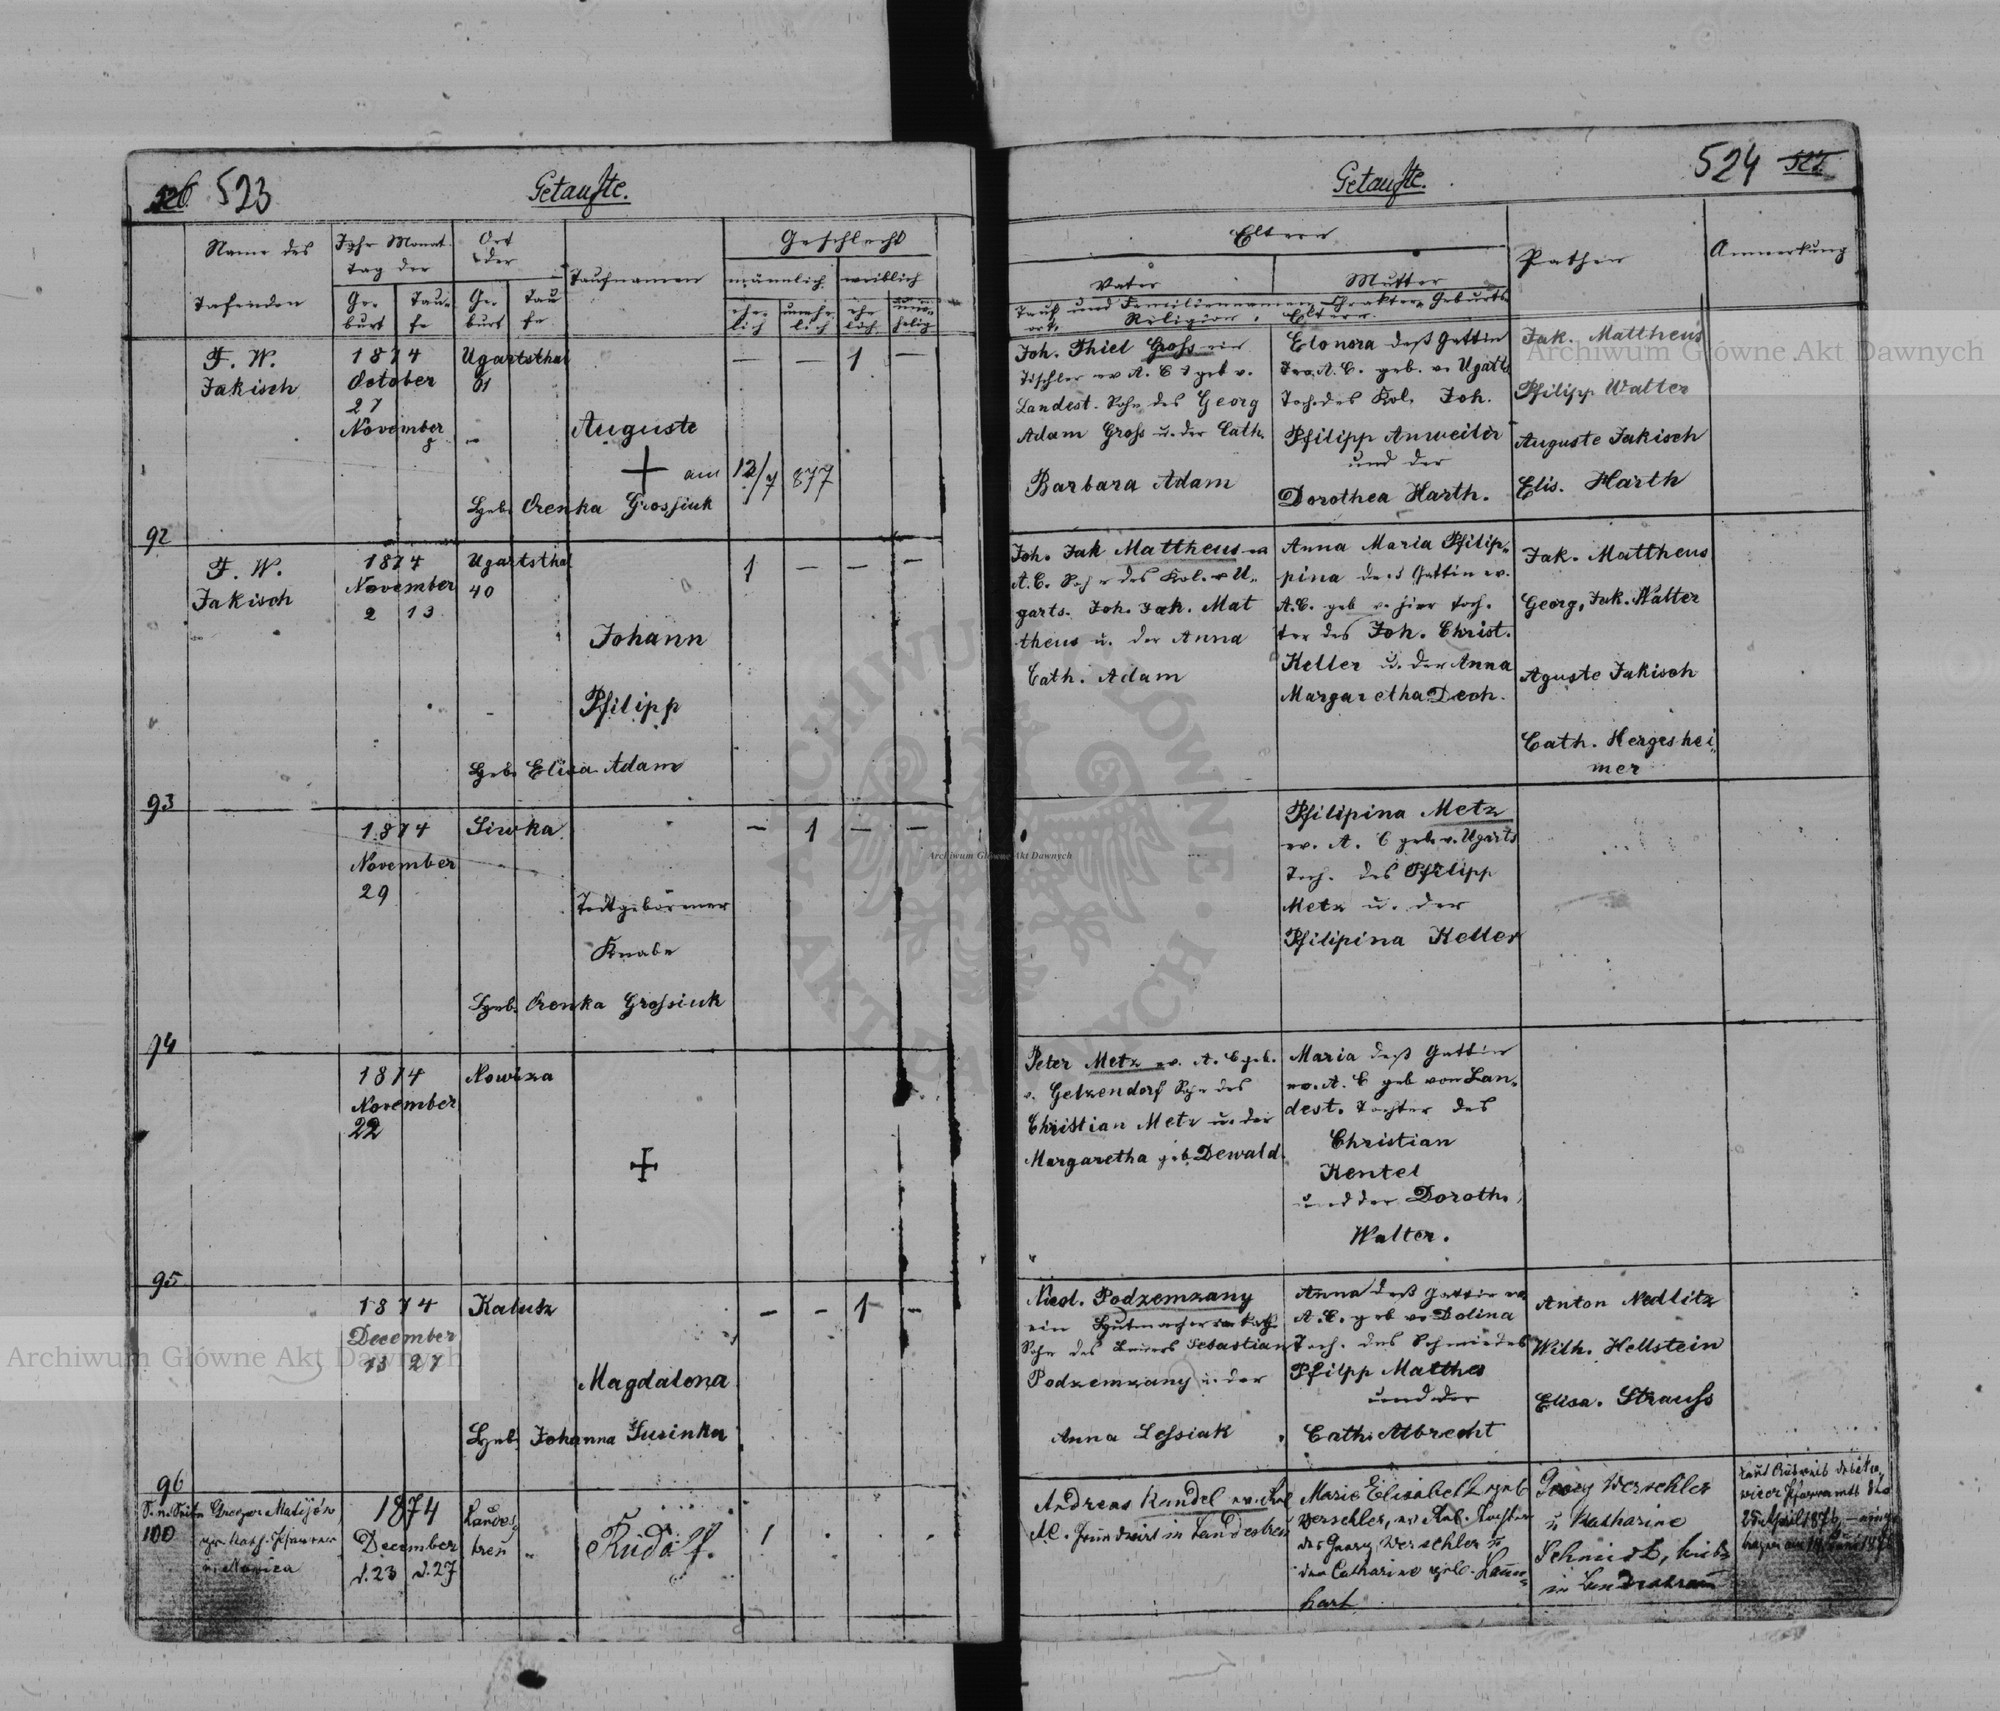 523
Getaufte.
Name des
Taufenden
Jahr Monat
Tag der
Ge-
burt
Tau-
fe
Ort
der
Ge-
burt
Tau
fe
Taufnamen
Geschlecht
männlich
weiblich
ehe-
lich
unehe-
lich
ehe
lich
F. W.
Jakisch
1874
October
27
November
8
Ugartsthal
Auguste
am 12/7 877
Hgeb. Orenka Grossiuk
92
F. W.
Jakisch
1874
November
2 13
Ugartsthal
40
1 — — —
Johann
Philipp
Hgeb. Elisa Adam
93
1874
November
29
Siwka
— 1 — —
Todtgeborener
Knabe
Hgeb. Orenka Grossiuk
94
1874
November
22
Nowiza
95
1874
December
13 27
Kalusz
— — 1 —
Magdalena
Hgeb. Johanna Jusinka
96
100
1874
December
d. 23 d. 27
Landes
treu
Rudolf.
1
524
Getaufte.
Eltern
Vater
Mutter
Tauf und Familiennamen, Charakter, Geburts-
ort, Religion, Eltern.
Pathen
Anmerkung
Joh. Thiel Gross ein
Tischler ev A. C geb v.
Landest. Sohn des Georg
Adam Gross u. der Cath.
Barbara Adam
Elonora dess Gattin
A. C. geb. v. Ugarts
Toch. des Kol. Joh.
Philipp Anweiler
und der
Dorothea Harth.
Jak. Mattheus
Philipp Walter
Auguste Jakisch
Elis. Harth
Joh. Jak Mattheus ev
A. C. Sohn des Kol. v U-
garts. Joh. Jak. Mat
theus u. der Anna
Cath. Adam
Anna Maria Philip-
pina dess Gattin ev.
A. C. geb v. hier Toch-
ter des Joh. Christ.
Keller u. der Anna
Margaretha Dech.
Jak. Mattheus
Georg, Jak. Walter
Aguste Jakisch
Cath. Hergeshei-
mer
Philipina Metz
ev. A. C geb. v. Ugarts
Toch. des Philipp
Metz u. der
Philipina Keller
Peter Metz ev. A. C geb.
v. Gelzendorf Sohn des
Christian Metz u. der
Margaretha geb. Dewald
Maria dess Gattin
ev. A. C geb von Lan-
dest. Tochter des
Christian
Kentel
und der Doroth.
Walter.
Nicol. Podzemzany
ein Hutmacher
Sohn des Sebastian
Podzemzany u. der
Anna Lessiak
Anna dess Gattin ev
A. C. geb v. Dolina
Toch. des Schmiedes
Philipp Matthes
und der
Cath. Albrecht
Anton Nedlitz
Wilh. Hellstein
Elisa. Strauss
Andreas Kandel
A. C. in Landestreu
Marie Elisabeth geb
Werschler,
des Georg Werschler u
der Catharine geb.
hart
Georg Werschler
u Katharine
Schmidt,
in Landestreu
Archiwum Główne Akt Dawnych
Archiwum Główne Akt Dawnych
Archiwum Główne Akt Dawnych
ARCHIWUM GŁÓWNE AKT DAWNYCH